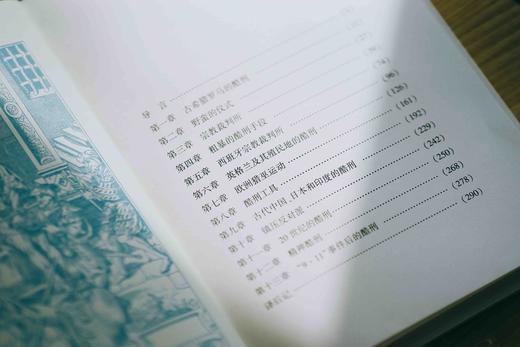 导言
第一章 古希腊罗马的酷刑
第二章 野蛮的仪式 (27)
第三章 宗教裁判所
第四章 粗暴的酷刑手段 (74)
第五章 西班牙宗教裁判所 (96)
第六章 英格兰及其殖民地的酷刑 (126)
第七章 欧洲猎巫运动 (161)
第八章 酷刑工具 (192)
第九章 古代中国、日本和印度的酷刑 (229)
第十章 镇压反对派 (242)
第十一章 20世纪的酷刑 (250)
第十二章 精神酷刑 (268)
第十三章 “9·11”事件后的酷刑 (278)
译后记 (290)